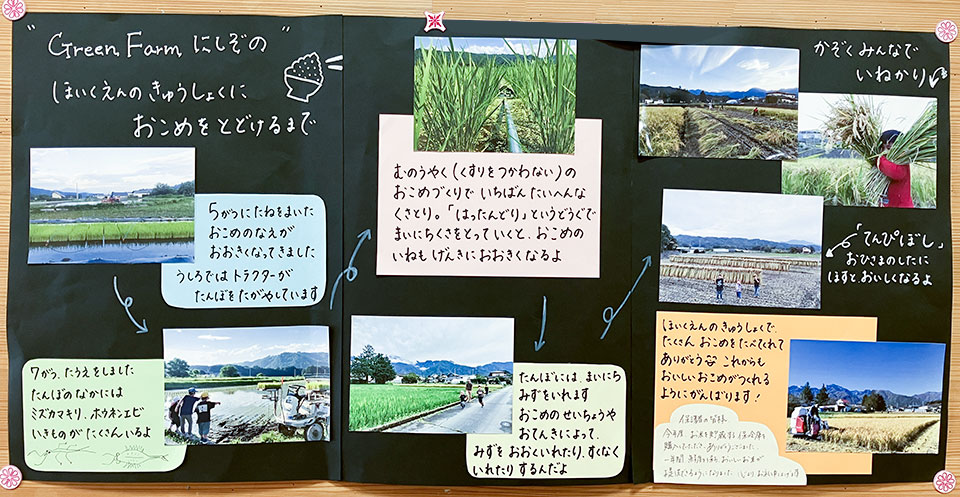 "Green Farm にしぞの"
ほいくえんのきゅうしょくに
おこめをとどけるまで
5がつにたねをまいた
おこめのなえが
おおきくなってきました
うしろではトラクターが
たんぼをたがやしています
7がつ、たうえをしました
たんぼのなかには
ミズカマキリ、ホウネンエビ
いきものがたくさんいるよ
むのうやく(くすりをつかわない)の
おこめづくりでいちばんたいへんな
くさとり。「はったんどり」というどうぐで
まいにちくさをとっていくと、おこめの
いねもげんきにおおきくなるよ
たんぼには まいにち
みずをいれます
おこめのせいちょうや
おてんきによって、
みずをおおくいれたり、すくなく
いれたりするんだよ
かぞくみんなで
いねかり
「てんぴぼし」
おひさまのしたに
ほすと、おいしくなるよ
ほいくえんのきゅうしょくで、
たくさんおこめをたべてくれて
ありがとう これからも
おいしいおこめがつくれる
ようにがんばります!
保護者の皆様
今年度、お米を貯蔵する保冷庫を
購入いただき、ありがとうございました